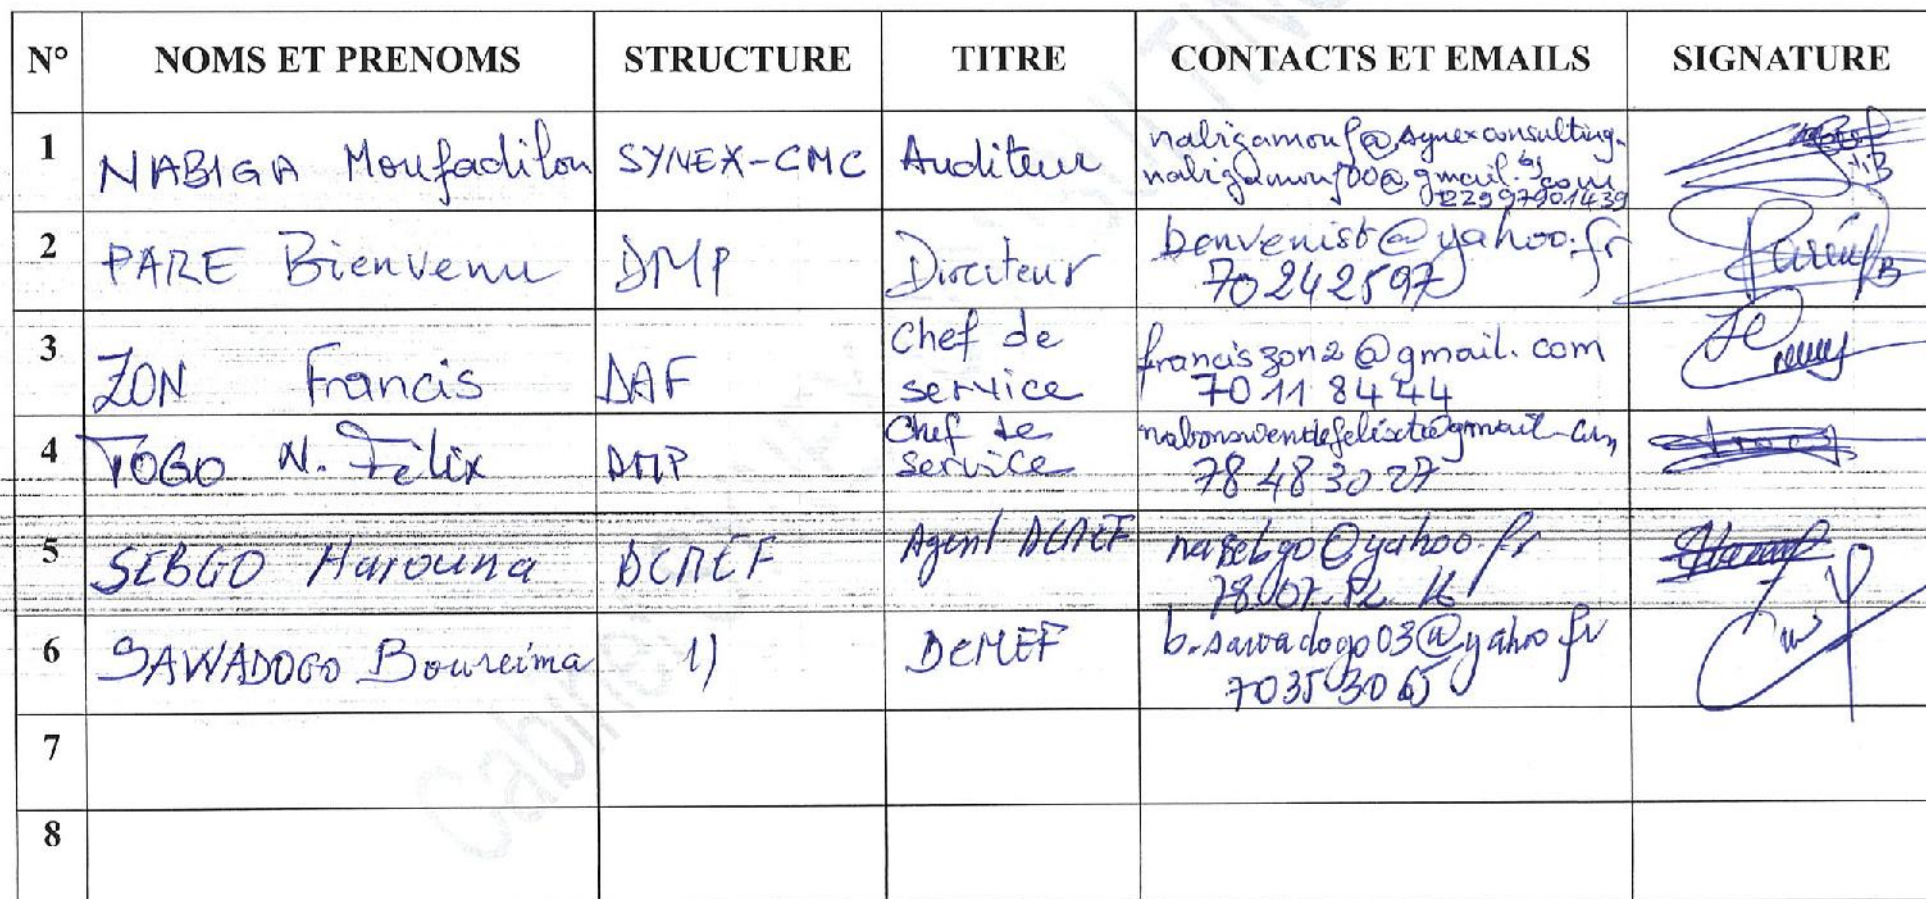 N° NOMS ET PRENOMS STRUCTURE TITRE CONTACTS ET EMAILS SIGNATURE
1 NABIGA Moufadilou SYNEX-CMC Auditeur nabigamouf@synexconsulting.bj
nabigamouf00@gmail.com
22997901439
2 PARE Bienvenu DMP Directeur benvenist@yahoo.fr
70242597
3 ZON Francis DAF Chef de service franciszon2@gmail.com
70 11 84 44
4 TOGO N. Félix DMP Chef de service
78 48 30 27
5 SEBGO Harouna DCMEF Agent DCMEF nasebgo@yahoo.fr
78.07.
6 SAWADOGO Boureima 1) DCMEF b.sawadogo03@yahoo.fr
70353065
7
8
Cabinet